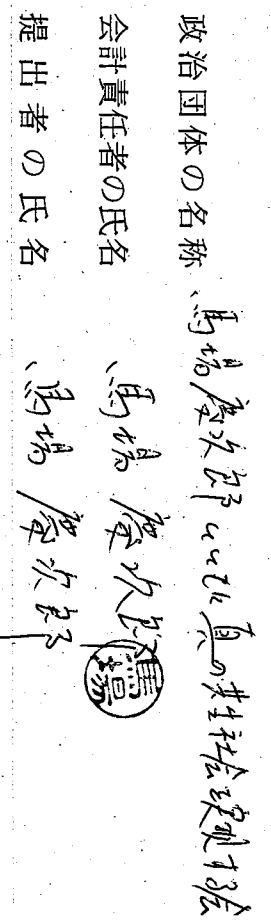 政治団体の名称 馬場慶次郎とともに真の共生社会を実現する会
会計責任者の氏名 馬場 慶次郎
馬場
提出者の氏名 馬場 慶次郎